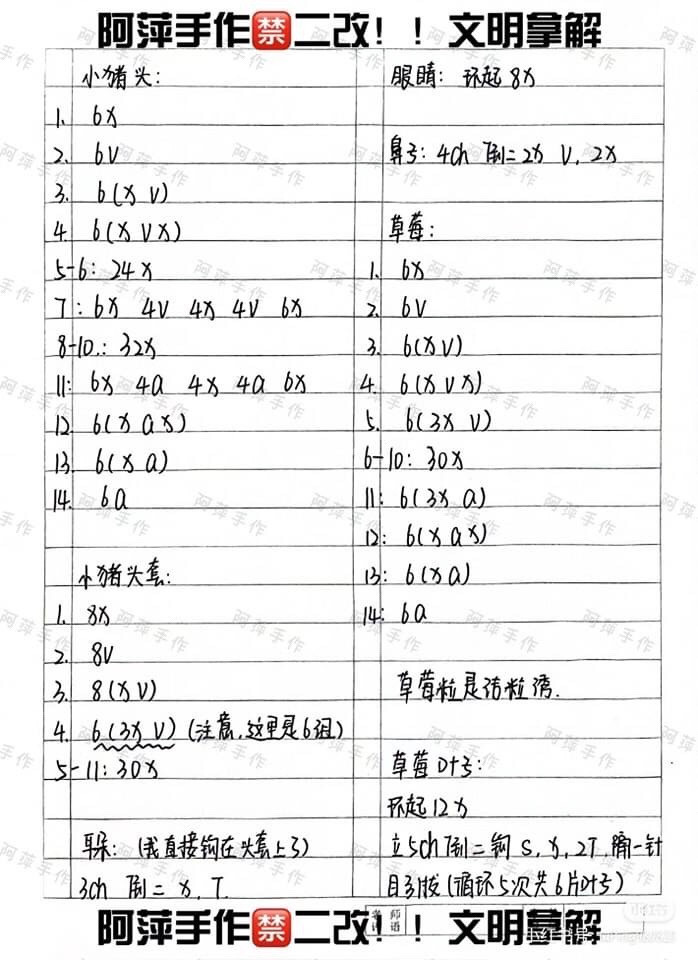 阿萍手作🈲二改！！文明拿解
小猪头:
1. 6x
2. 6v
3. 6(x v)
4. 6(x v x)
5-6: 24x
7: 6x 4v 4x 4v 6x
8-10.: 32x
11: 6x 4a 4x 4a 6x
12. 6(x a x)
13. 6(x a)
14. 6a
小猪头套:
1. 8x
2. 8v
3. 8(x v)
4. 6(3x v) (注意,这里是6组)
5-11: 30x
耳朵: (我直接钩在头套上了)
3ch 倒二 x, T.
眼睛: 环起8x
鼻子: 4ch 倒二 2x v, 2x
草莓:
1. 6x
2. 6v
3. 6(x v)
4. 6(x v x)
5. 6(3x v)
6-10: 30x
11: 6(3x a)
12: 6(x a x)
13: 6(x a)
14: 6a
草莓粒是
草莓叶子:
环起12x
立5ch 倒二钩 S, x, 2T 隔一针
引拔(循环5次共6片叶子)
阿萍手作🈲二改！！文明拿解
阿萍手作
小红书